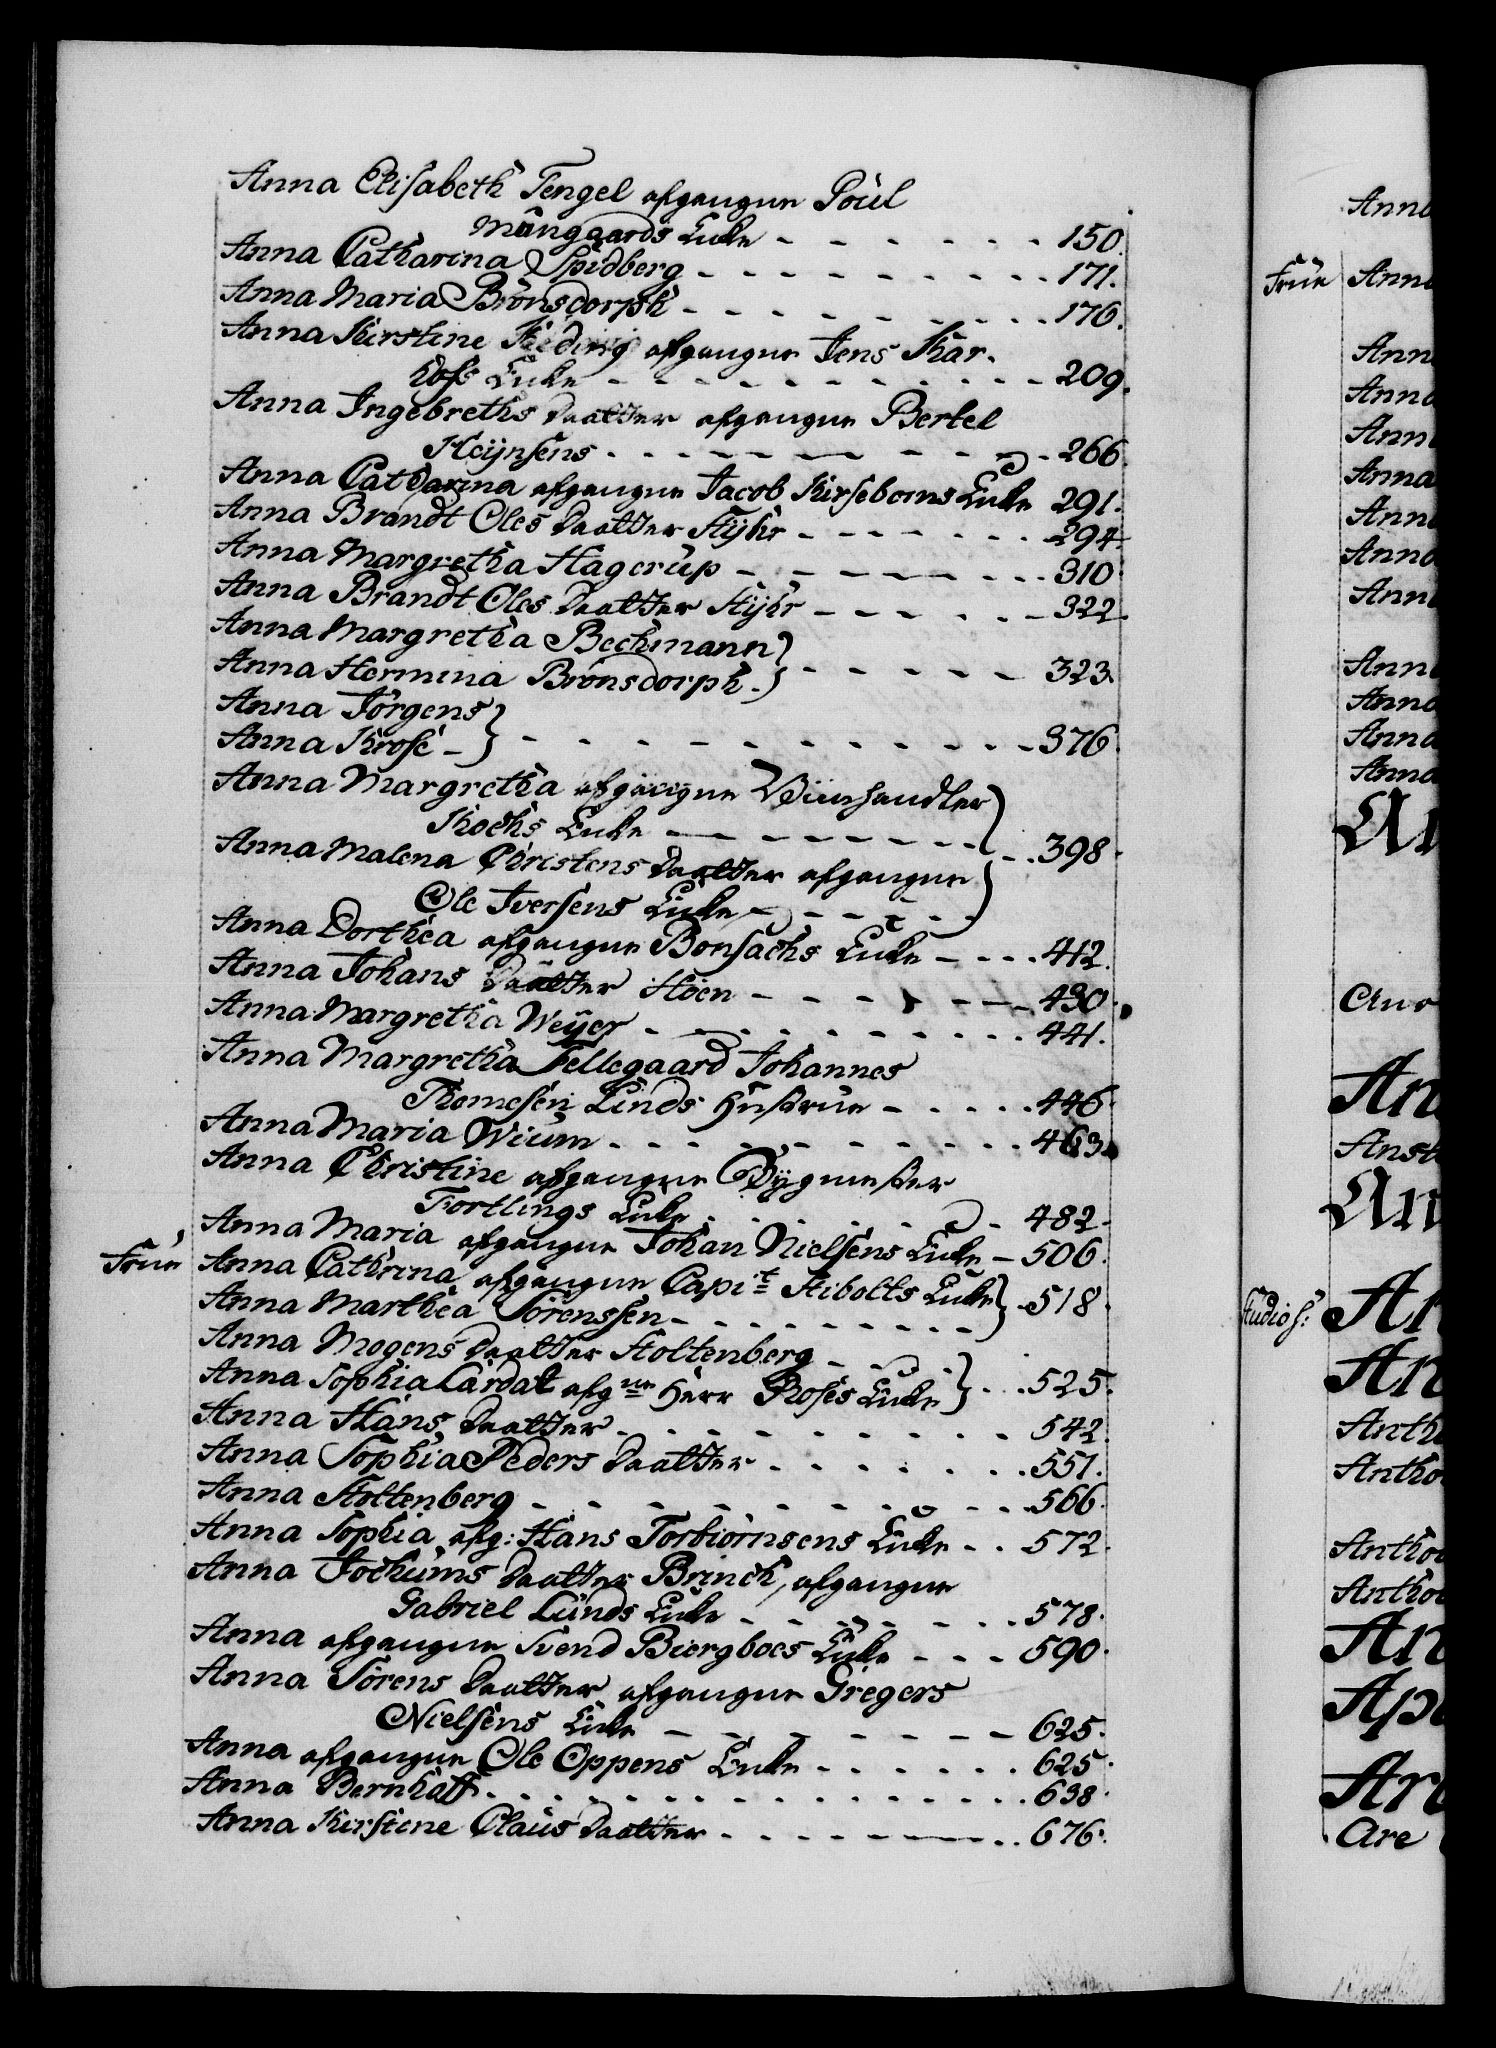 Anna Elisabeth Tengel afgangne Poul
Munggaards Enke - - - - - - - 150.
Anna Catharina Spidberg - - - - - - - - - 171.
Anna Maria Brönsdorph - - - - - - - - - 176.
Anna Kirstine Hiding afgangne Jens Kar-
hofs Enke - - - - - - - - - - - 209.
Anna Ingebreths daatter afgangne Bertel
Heijnsens - - - - - - - - - 266.
Anna Catharina afgangne Jacob Kirseboms Enke 291.
Anna Brandt Oles daatter Hijhr - - - - - - 294.
Anna Margretha Hagerup - - - - - - - 310.
Anna Brandt Oles daatter Hijhr - - - - - - 322.
Anna Margretha Bechmann }
Anna Hermina Brönsdorph. } - - - - - - 323.
Anna Jörgens }
Anna Krose - } - - - - - - - - - - - - 376.
Anna Margretha afgangne Viinhandler }
Kochs Enke - - - - - - - - }
Anna Malena Christens daatter afgangne } - - 398.
Ole Iversens Enke - - - - - - }
Anna Dorthea afgangne Bonsachs Enke - - - - 412.
Anna Johans daatter Höen - - - - - - - - 430.
Anna Margretha Weyer - - - - - - - - - 441.
Anna Margretha Fellegaard Johannes
Thomesen Linds Hustrue - - - - - 446.
Anna Maria Wium - - - - - - - - - - 463.
Anna Christine afgangne Tøygmester
Fortlings Enke - - - - - - - - 482.
Anna Maria afgangne Johan Nielsens Enke - 506.
Frue Anna Cathrina afgangne Capit Hibolts Enke }
Anna Marthea Sörenssen - - - - - - - - - } - 518.
Anna Mogens daatter Stoltenberg - - - - }
Anna Sophia Cardat afgne Herr Roses Enke } - - - 525.
Anna Hans daatter - - - - - - - - - - 542.
Anna Sophia Peders daatter - - - - - - - 551.
Anna Stoltenberg - - - - - - - - - - - 566.
Anna Sophia afg: Hans Torbiörnsens Enke - - 572.
Anna Jochums daatter Brinch, afgangne
Gabriel Lunds Enke - - - - - - - 578.
Anna afgangne Svend Biergboes Enke - - - 590.
Anna Sörens daatter afgangne Gregers
Nielsens Enke - - - - - - - - 625.
Anna afgangne Ole Oppens Enke - - - - - - 625.
Anna Bernhatt - - - - - - - - - - - - - 638.
Anna Kirstine Claus daatter - - - - - - - - 676.
Anna
Frue Anna
Ann
Anna
Ann
Anna
Ann
Anna
Ann
Ann
Anna
Anna
Anna
An
An
Anst
An
Studios: An
An
Anth
Antho
Antho
Antho
An
Ap
Ar
Are